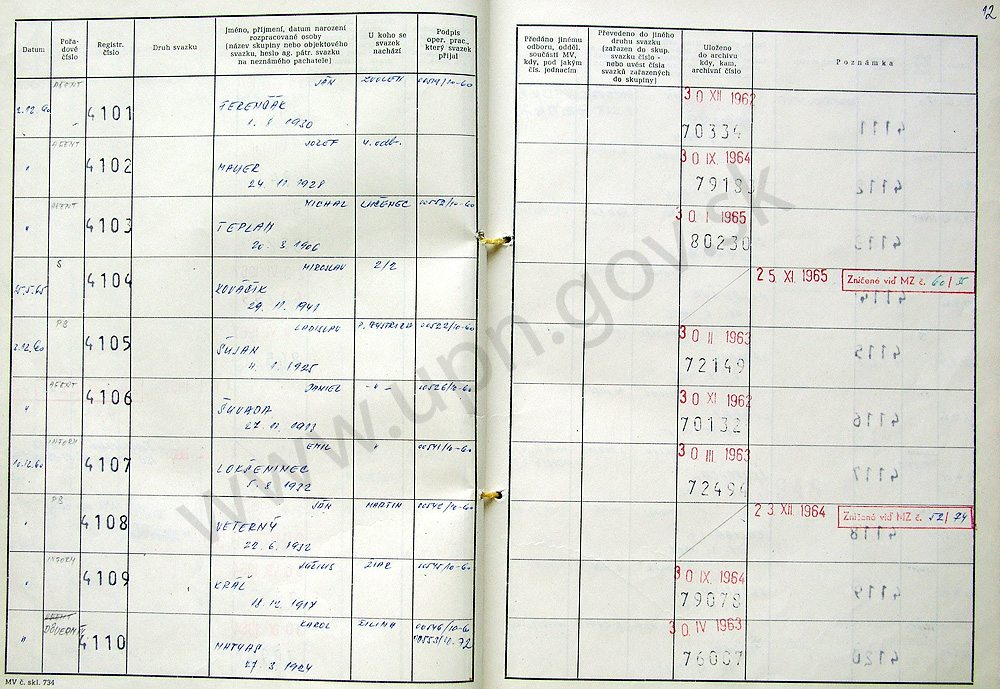 12
Datum
Pořa-
dové
číslo
Registr.
číslo
Druh svazku
Jméno, příjmení, datum narození
rozpracované osoby
(název skupiny nebo objektového
svazku, heslo ag. pátr. svazku
na neznámého pachatele)
U koho se
svazek
nachází
Podpis
oper. prac.,
který svazek
přijal
Předáno jinému
odboru, odděl.
součásti MV,
kdy, pod jakým
čís. jednacím
Převedeno do jiného
druhu svazku
(zařazen do skup.
svazku číslo -
nebo uvést čísla
svazků zařazených
do skupiny)
Uloženo
do archivu
kdy, kam,
archivní číslo
Poznámka
AGENT JÁN ZVOLEN 30 XII 1962
2.12.60 4101 70334
1930
AGENT JOZEF 30 IX. 1964
" 4102 MAYER 79183
24. 11. 1928
AGENT MICHAL LUČENEC 30. I 1965
" 4103 TEPLAN 80230
20. 3. 1906
S MIROSLAV 2/2 25 XI. 1965 Zničené viď MZ č.
4104 KOVÁČIK
29. 11. 1941
PB LADISLAV 00522/10-60 30 II 1963
2.12.60 4105 ŠUJAN 72149
1925
AGENT DANIEL - " - 00526/10-60 30 XI 1962
" 4106 ŠUVADA 70132
27. 11.
INFORM EMIL " 00541/10-60 30 III 1963
10.12.60 4107 72494
PB JÁN MARTIN 00542/10-60 23 XII 1964 Zničené viď MZ č. 52/74
" 4108 VETERNÝ
22. 6. 1932
INFORM JÚLIUS ŽIAR 00545/10-60 30 IX. 1964
" 4109 KRÁĽ 79078
18. 12. 1917
AGENT KAROL ŽILINA 00546/10-60 30. IV 1963
" DÔVERNÍK 4110 76007
27. 3. 1924
MV č. skl. 734
www.upn.gov.sk